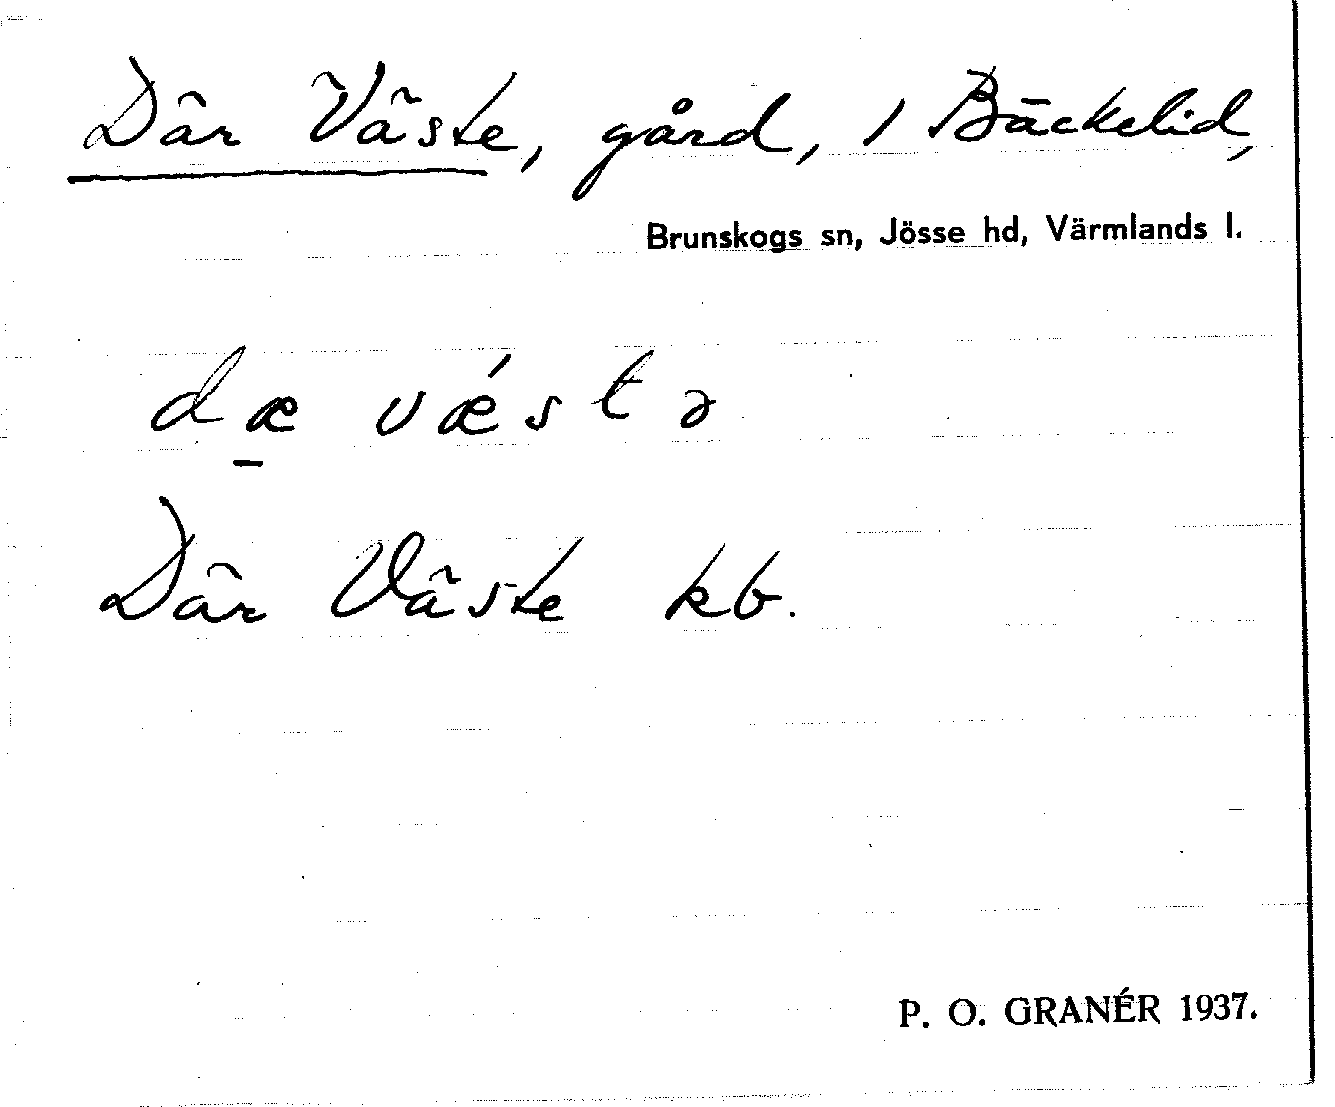 Där Väste, gård, i Bäckelid,
Brunskogs sn, Jösse hd, Värmlands l.
dæ̱ vǽstə
Där Väste kb.
P. O. GRANÉR 1937.